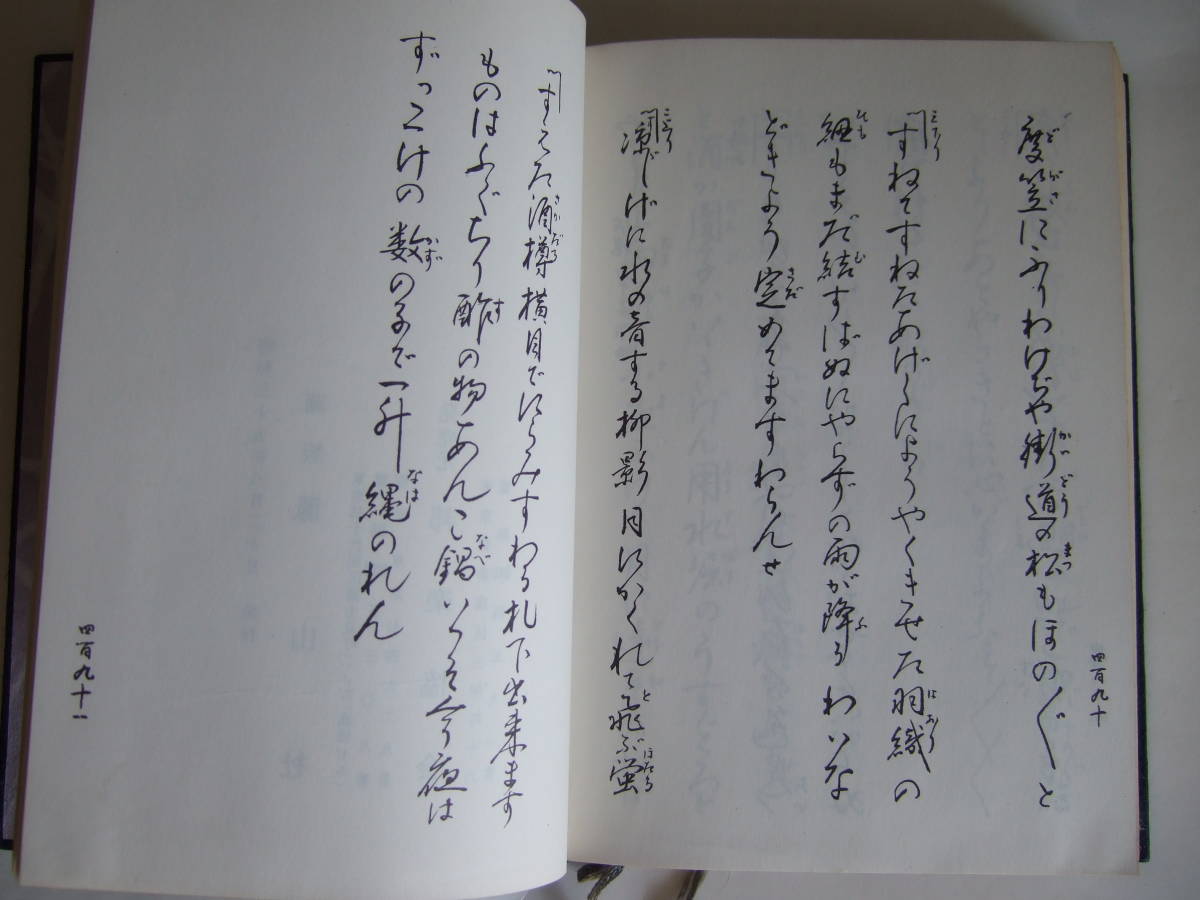 度笠にふりわけぢや街道の松もほの〲と
すねてすねたあげくにようやくきせた羽織の
紐もまだ結すばぬにやらずの雨が降るわいな
どきよう定めてますわらんせ
涼しげに水の音する柳影月にかくれて飛ぶ蛍
四百九十
すへた酒樽横目でにらみすわる札下出来ます
ものはふぐちり酢の物あんこ鍋いつそ今夜は
ずつこけの数の子で一升縄のれん
四百九十一